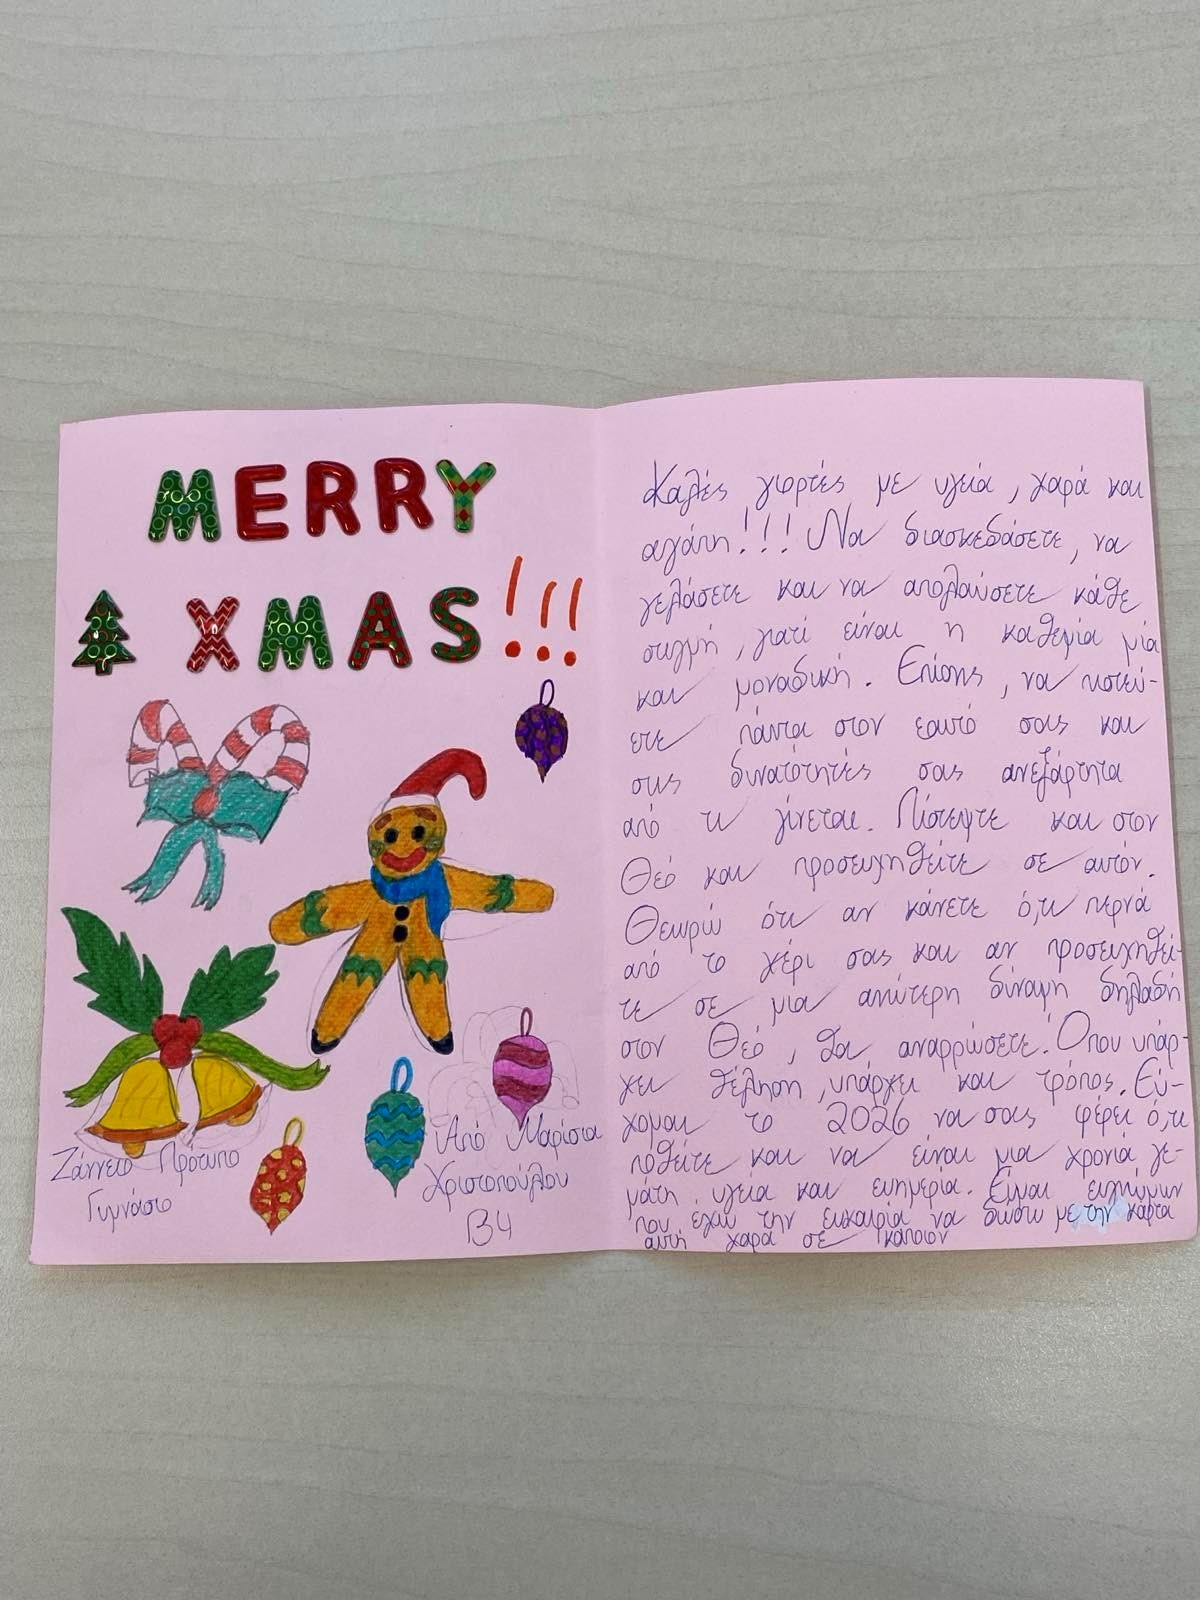 MERRY
XMAS!!!
Ζάννειο Πρότυπο
Γυμνάσιο
Από Μαρίσια
Χριστοπούλου
Β4
Καλές γιορτές με υγεία, χαρά και
αγάπη!!! Να διασκεδάσετε, να
γελάσετε και να απολαύσετε κάθε
στιγμή, γιατί είναι η καθεμία μία
και μοναδική. Επίσης, να πιστεύ-
ετε πάντα στον εαυτό σας και
στις δυνατότητές σας ανεξάρτητα
από τι γίνεται. Πίστεψτε και στον
Θεό και προσευχηθείτε σε αυτόν.
Θεωρώ ότι αν κάνετε ό,τι περνά
από το χέρι σας και αν προσευχηθεί-
τε σε μια ανώτερη δύναμη δηλαδή
στον Θεό, θα αναρρώσετε. Όπου υπάρ-
χει θέληση, υπάρχει και τρόπος. Εύ-
χομαι το 2026 να σας φέρει ό,τι
ποθείτε και να είναι μια χρονιά γε-
μάτη υγεία και ευημερία. Είμαι ευγνώμων
που έχω την ευκαιρία να δώσω με την κάρτα
αυτή χαρά σε κάποιον